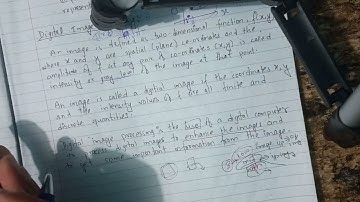 represent
Digital Image
An image is defined as two dimensional function, f(x,y)
where x and y are spatial (plane) co-ordinates and the
amplitude of f at any pair of co-ordinates (x,y) is called
intensity or grey level of the image at that point.
An image is called a digital image if the coordinates x,y
and the intensity values of f are all finite and
discrete quantities.
Digital image processing is the use of a digital computer
to process digital images to enhance the images and
to get some important information from the image.